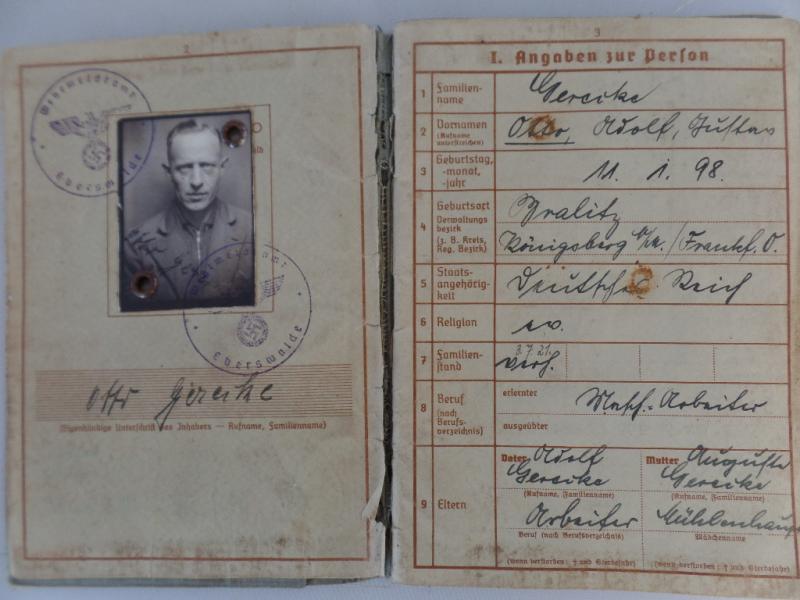 2
Wehrmeldeamt
Eberswalde
Wehrmeldeamt
Eberswalde
Otto Gereike
(Eigenhändige Unterschrift des Inhabers — Rufname, Familienname)
3
I. Angaben zur Person
1 Familien-
name
Gereike
2 Vornamen
(Rufname
unterstreichen)
Otto, Adolf, Gustav
3 Geburtstag,
-monat,
-jahr
11. 1. 98.
4 Geburtsort
Verwaltungs
bezirk
(z. B. Kreis,
Reg. Bezirk)
Bralitz
Königsberg N/M. / Frankf. O.
5 Staats-
angehörig-
keit
Deutsches Reich
6 Religion
ev.
7 Familien-
stand
3.7.21.
verh.
8 Beruf
(nach
Berufs-
verzeichnis)
erlernter
Masch.-Arbeiter
ausgeübter
9 Eltern
Vater Adolf
Gereike
(Rufname, Familienname)
Arbeiter
Beruf (nach Berufsverzeichnis)
(wenn verstorben: † und Sterbejahr)
Mutter Auguste
Gereike
(Rufname, Familienname)
Mühlenhaupt
Mädchenname
(wenn verstorben: † und Sterbejahr)